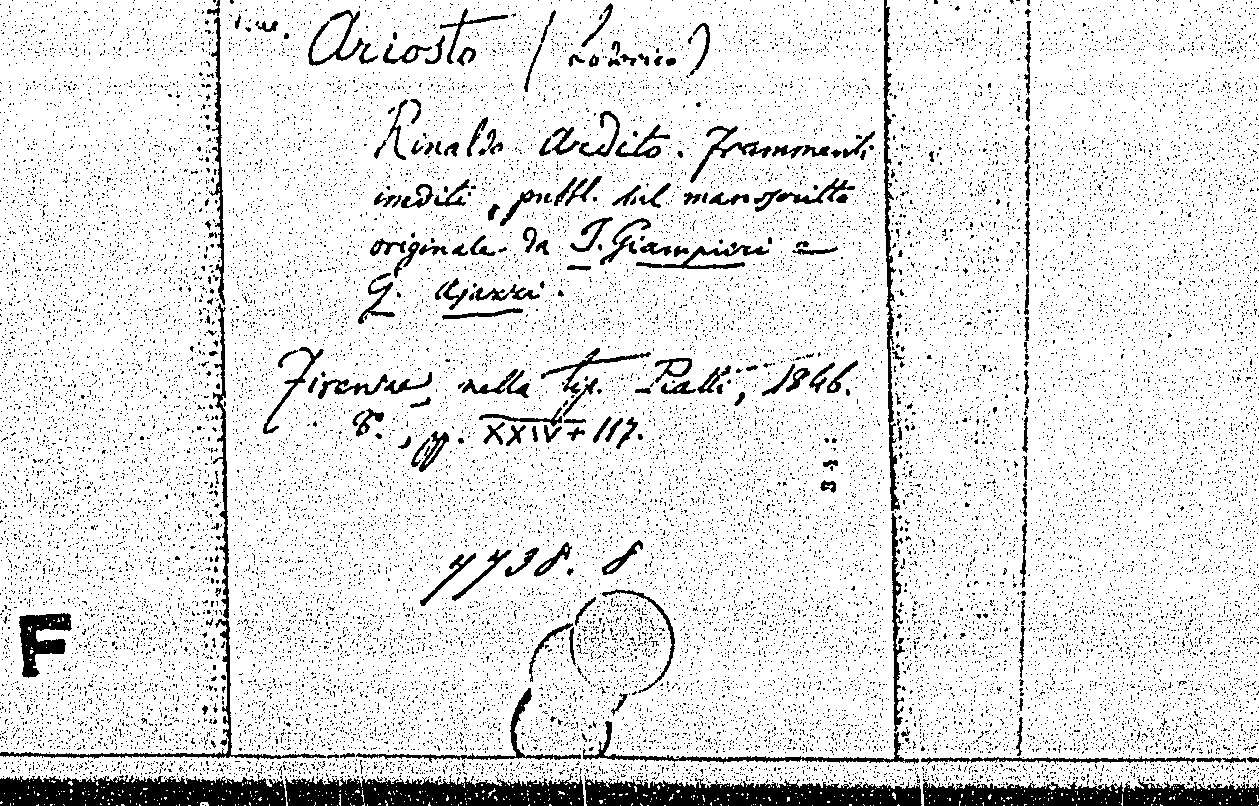 Ariosto (Lodovico)
Rinaldo Ardito. Frammenti
inediti, pubbl. sul manoscritto
originale da I. Giampieri e
G. Ajazzi.
Firenze, nella tip. Piatti, 1846.
8., pp. XXIV + 117.
7738. 8
F